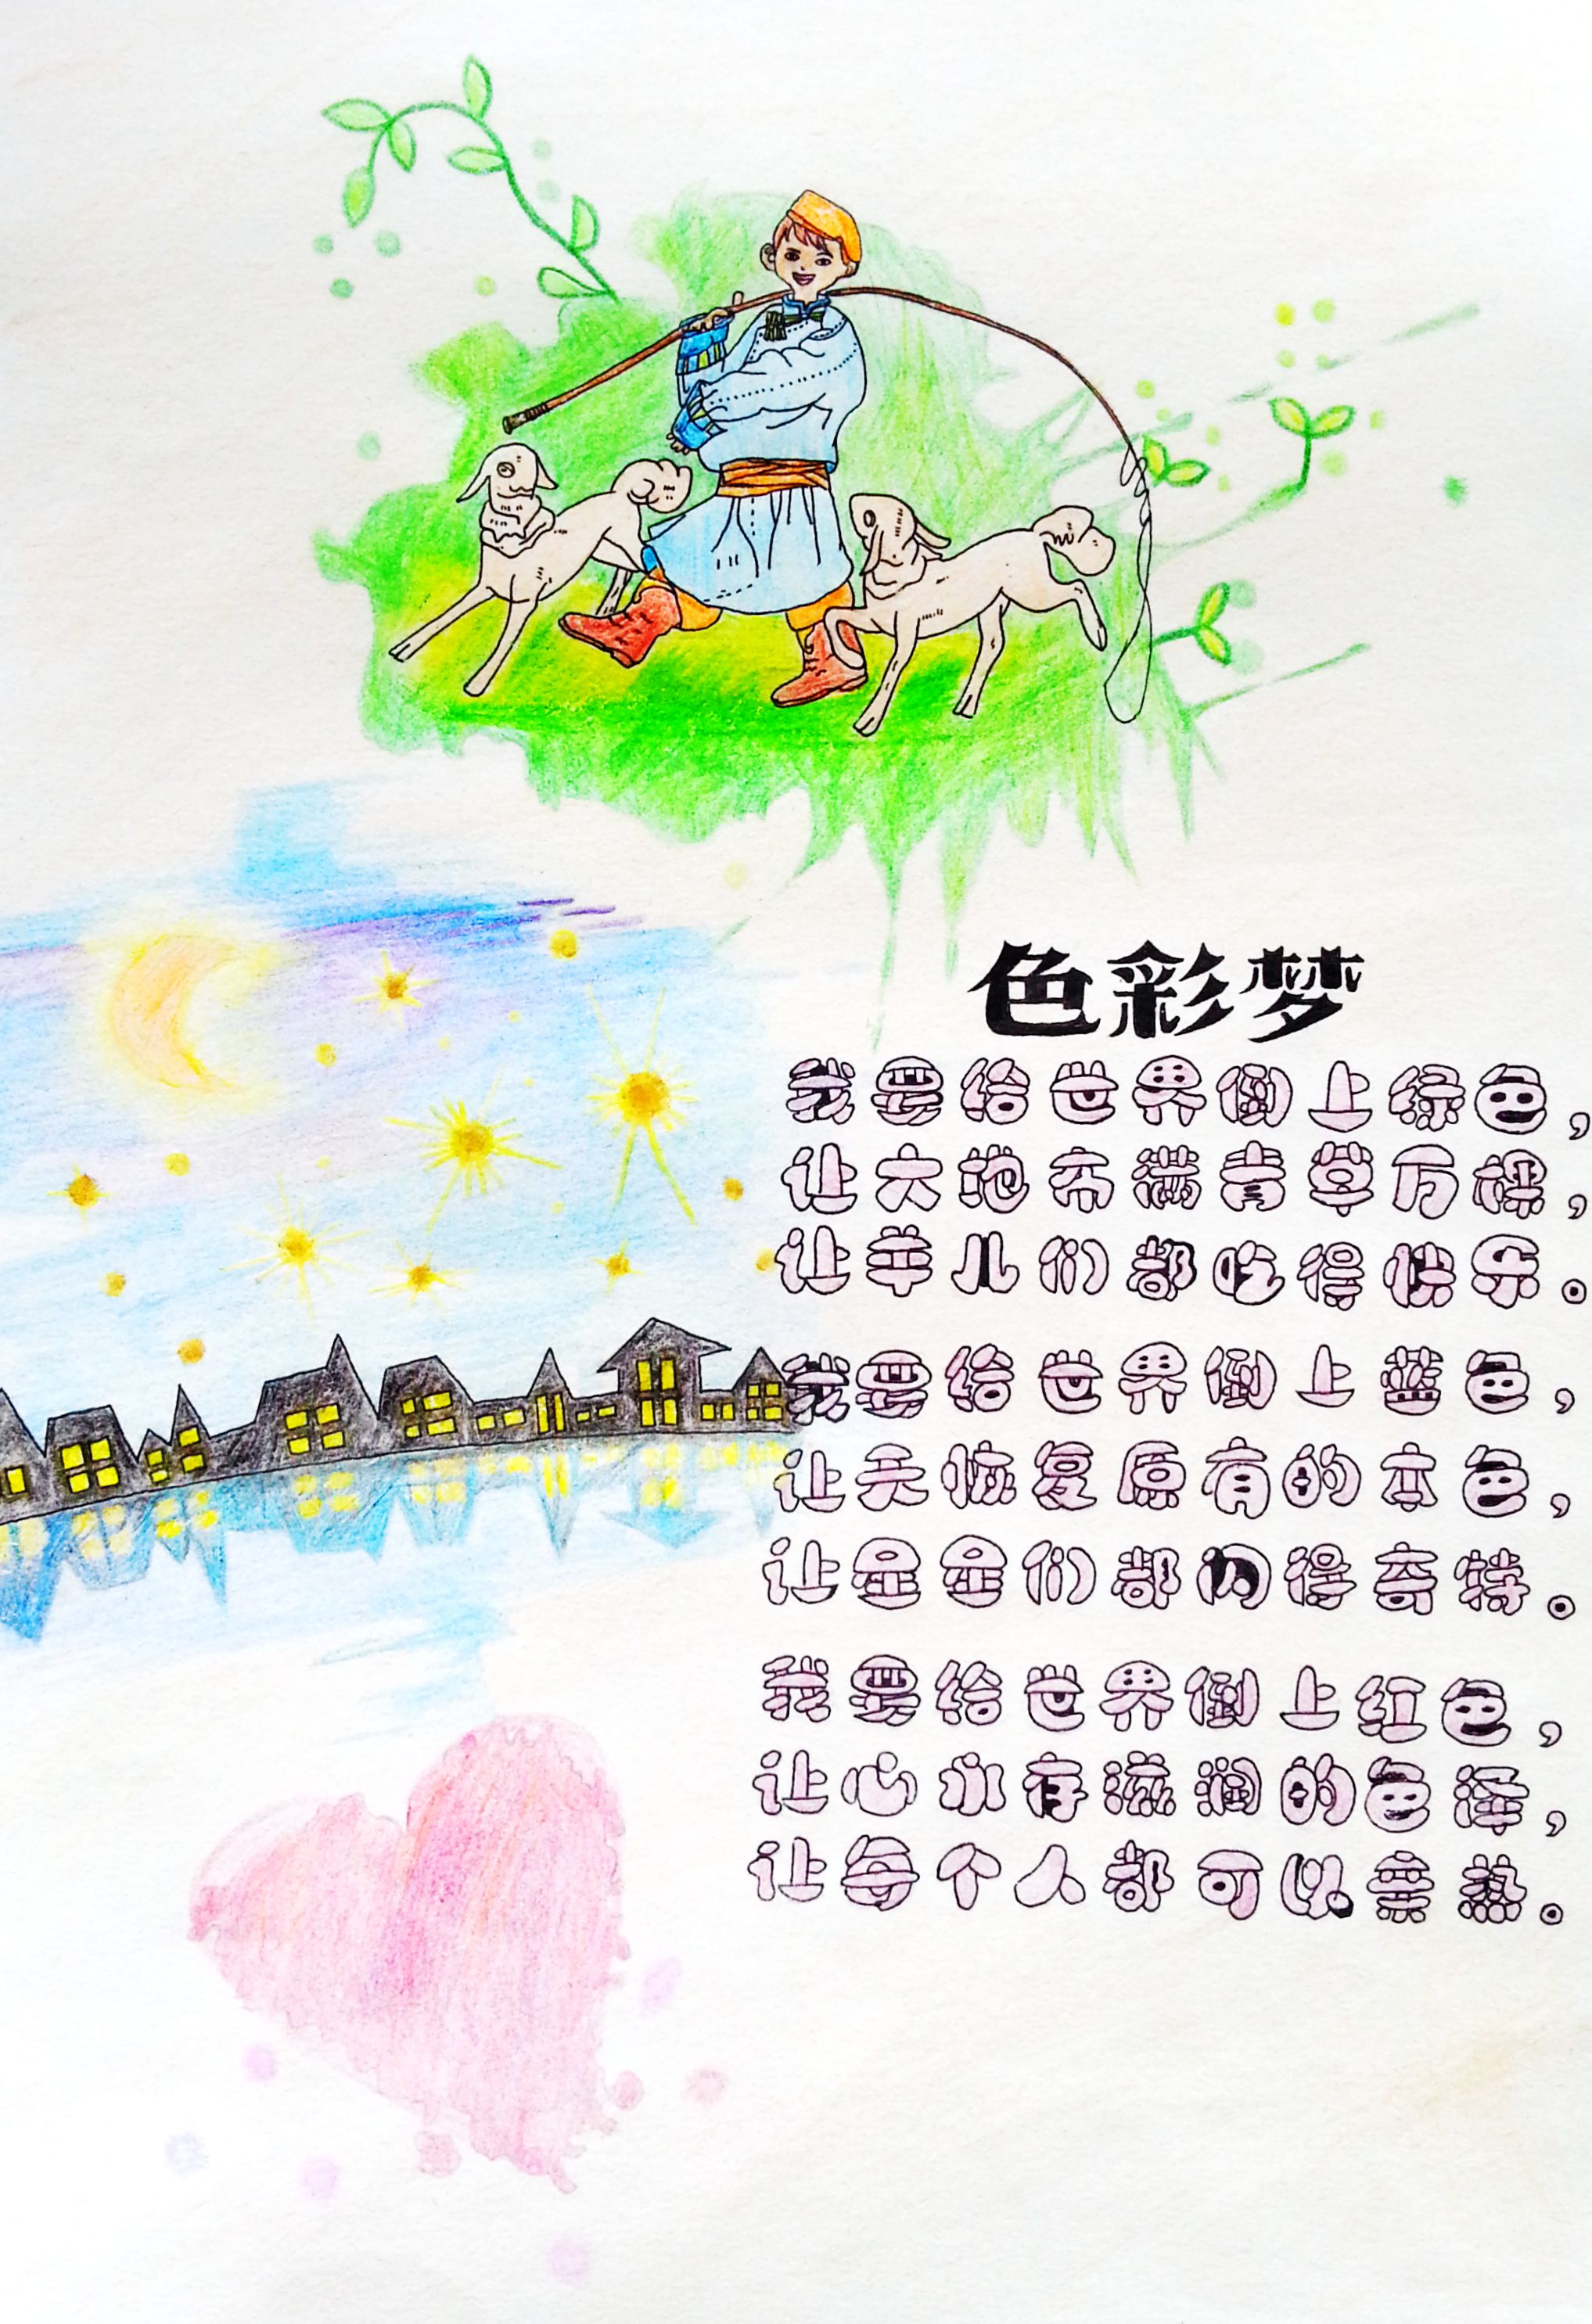 色彩梦
我要给世界倒上绿色，
让大地布满青草万棵，
让羊儿们都吃得快乐。
我要给世界倒上蓝色，
让天恢复原有的本色，
让星星们都闪得奇特。
我要给世界倒上红色，
让心永存滋润的色泽，
让每个人都可以亲热。